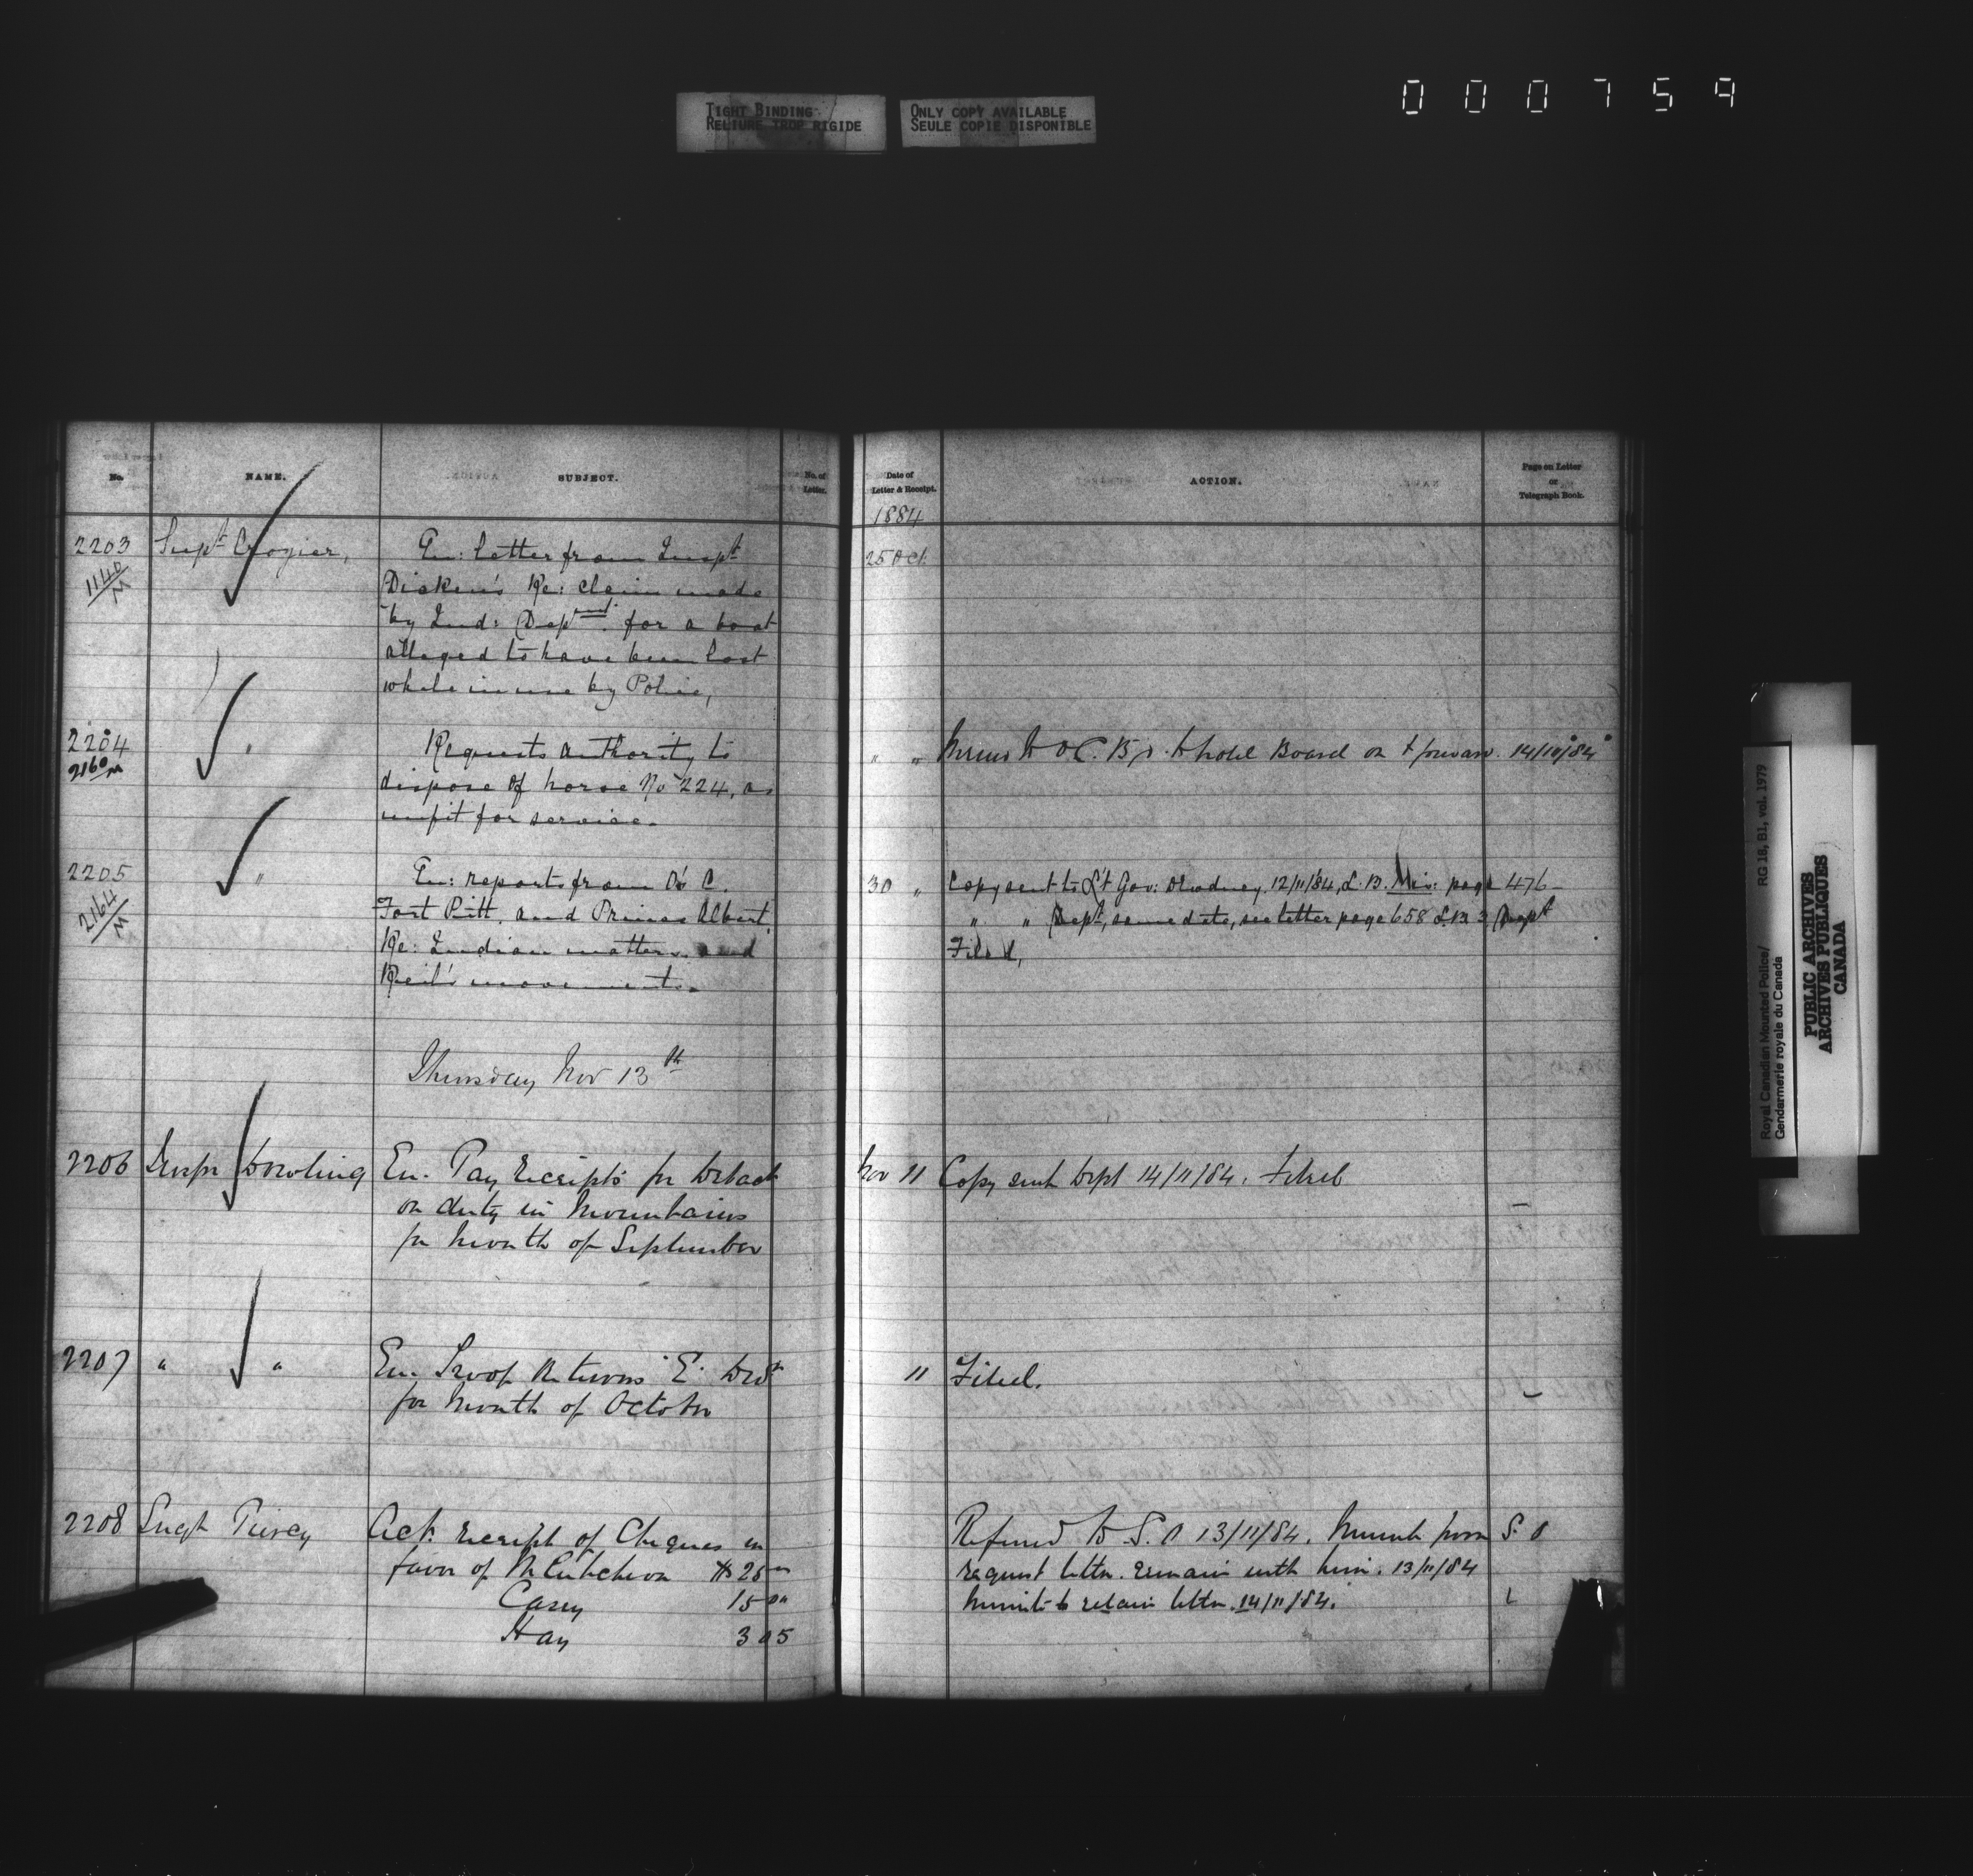 000759
TIGHT BINDING
RELIURE TROP RIGIDE
ONLY COPY AVAILABLE
SEULE COPIE DISPONIBLE
No.
NAME.
SUBJECT.
No. of Letter.
Date of Letter & Receipt.
ACTION.
Page on Letter or Telegraph Book.
1884
2203 Supt Crozier, En: letter from Inspt 25 Oct.
1140/M Dicken's Re: claim made
by Ind: Deptment. for a boat
alleged to have been lost
while in use by Police,
2204 " Requests authority to " " Memo to O.C. B to hold Board on & forward. 14/11/84
2160/M dispose of horse No 224, as
unfit for service.
2205 " En: reports from O's C. 30 " Copy sent to Lt Gov: Dewdney 12/11/84, L.B. Mis: page 476
2164/M Fort Pitt, and Prince Albert, " " Dept, same date, see letter page 658 L.B. 3 Dept
Re: Indian matters and Filed,
Reil's movements.
Thursday Nov 13th
2206 Inspr Dowling En. Pay Receipts for Detach Nov 11 Copy sent Dept 14/11/84. Filed
on duty in Mountains
for Month of September
2207 " " En. Troop Returns "E" Divn 11 Filed.
for Month of October
2208 Sergt Piercy Ack: receipt of Cheques in Referred to S.O 13/11/84. Minute from S.O
favor of McCutcheon $25 request letter remain with him. 13/11/84
Casey 15 00 Minute to retain letter. 14/11/84.
Hay 3 05
Royal Canadian Mounted Police/
Gendarmerie royale du Canada
RG 18, B1, vol. 1979
PUBLIC ARCHIVES
ARCHIVES PUBLIQUES
CANADA